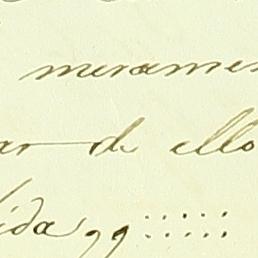 merames
ar de ello
ida,,::::::